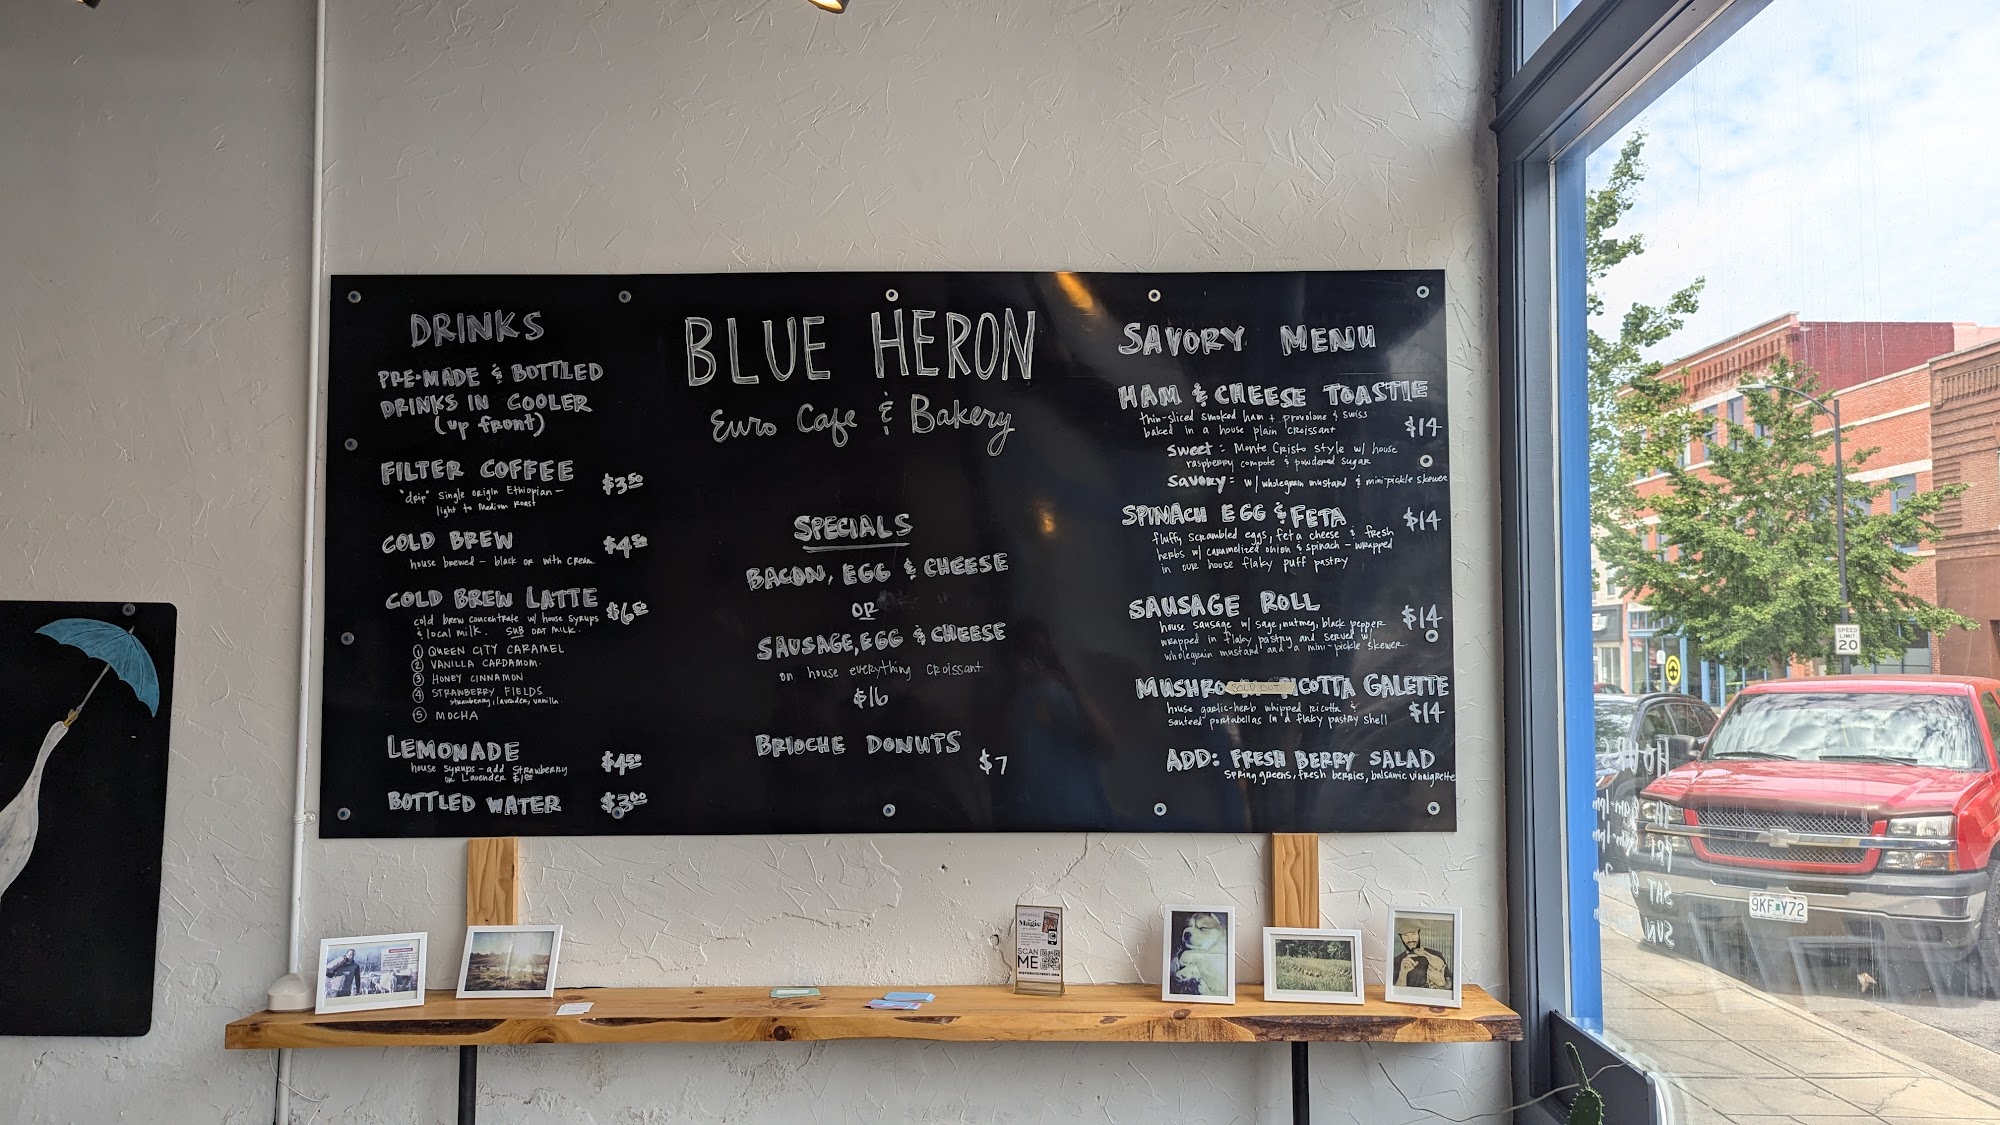 DRINKS
PRE-MADE & BOTTLED
DRINKS IN COOLER
(up front)
FILTER COFFEE $3.50
"drip" single origin Ethiopian –
light to medium roast
COLD BREW $4.50
house brewed – black or with cream.
COLD BREW LATTE $6.50
cold brew concentrate w/ house syrups
& local milk. SUB OAT MILK.
① QUEEN CITY CARAMEL
② VANILLA CARDAMOM.
③ HONEY CINNAMON
④ STRAWBERRY FIELDS
strawberry, lavender, vanilla.
⑤ MOCHA
LEMONADE $4.50
house syrups – add strawberry
or lavender
BOTTLED WATER $3.00
BLUE HERON
Euro Cafe & Bakery
SPECIALS
BACON, EGG & CHEESE
OR
SAUSAGE, EGG & CHEESE
on house everything croissant
$16
BRIOCHE DONUTS
$7
SAVORY MENU
HAM & CHEESE TOASTIE
thin-sliced smoked ham + provolone & swiss
baked in a house plain croissant $14
Sweet: Monte Cristo style w/ house
raspberry compote & powdered sugar
Savory: w/ wholegrain mustard & mini-pickle skewer
SPINACH EGG & FETA $14
fluffy scrambled eggs, feta cheese & fresh
herbs w/ caramelized onion & spinach – wrapped
in our house flaky puff pastry
SAUSAGE ROLL $14
house sausage w/ sage, nutmeg, black pepper
wrapped in flaky pastry and served w/
wholegrain mustard and a mini-pickle skewer.
MUSHRO SOLD OUT ICOTTA GALETTE
house garlic-herb whipped ricotta & $14
sauteed portabellas in a flaky pastry shell
ADD: FRESH BERRY SALAD
spring greens, fresh berries, balsamic vinaigrette
Magic
SCAN
ME
SPEED
LIMIT
20
9KF Y72
HOURS
FRI
SAT
SUN